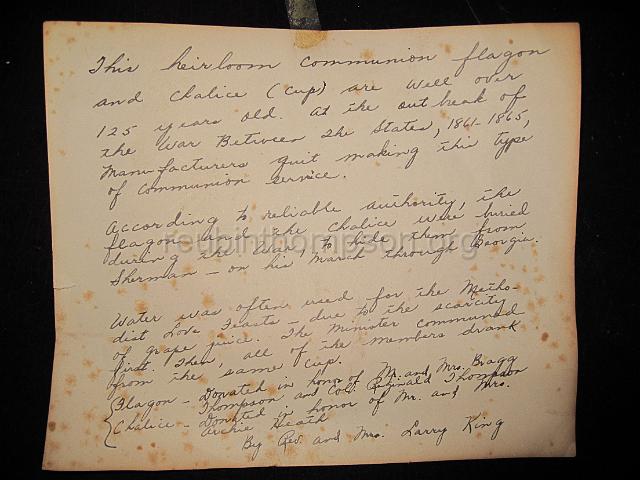 This heirloom communion flagon
and Chalice (Cup) are well over
125 years old. At the outbreak of
the War Between the States, 1861-1865,
Manufacturers quit making this type
of Communion service.
According to reliable authority, the
flagon and the Chalice were buried
during the War, to hide them from
Sherman - on his March through Georgia.
reubinthompson.org
Water was often used for the Metho-
dist Love Feasts - due to the scarcity
of grape juice. The Minister communed
first. Then, all of the members drank
from the same cup.
Flagon - Donated in honor of Mr. and Mrs. Bragg
Thompson and Col. Reginald Thompson
Chalice - Donated in honor of Mr. and Mrs.
Archie Heath
By Rev. and Mrs. Larry King